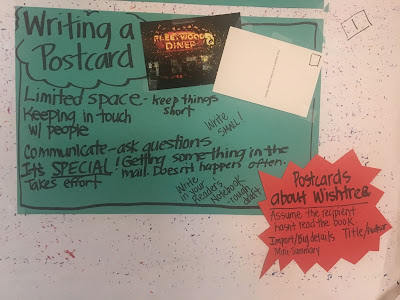 Writing a
Postcard
FLEETWOOD
DINER
Limited space - keep things
short
Keeping in touch
w/ people
Write
SMALL!
Communicate - ask questions
It's SPECIAL! Getting something in the
mail. Doesn't happens often.
Takes effort
Write
in your
Readers
Notebook
rough
draft
Postcards
about Wishtree
Assume the recipient
hasn't read the book.
Import/Big details Title/Author
Mini Summary